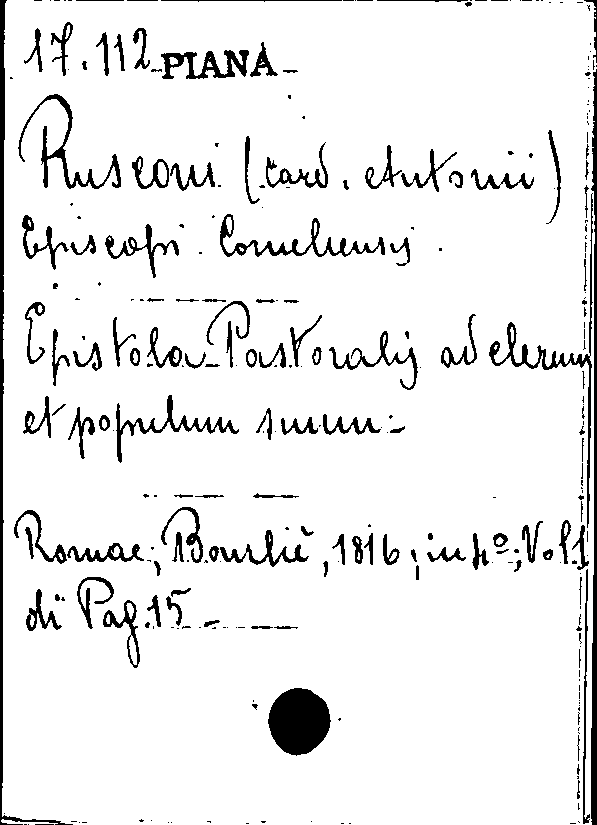 17.112 PIANA
Rusconi (Card. Antonii)
Episcopi Corneliensis.
Epistola Pastoralis ad clerum
et populum suum-
Romae; Bourliè, 1816; in 4º; Vol 1
di Pag. 15 -